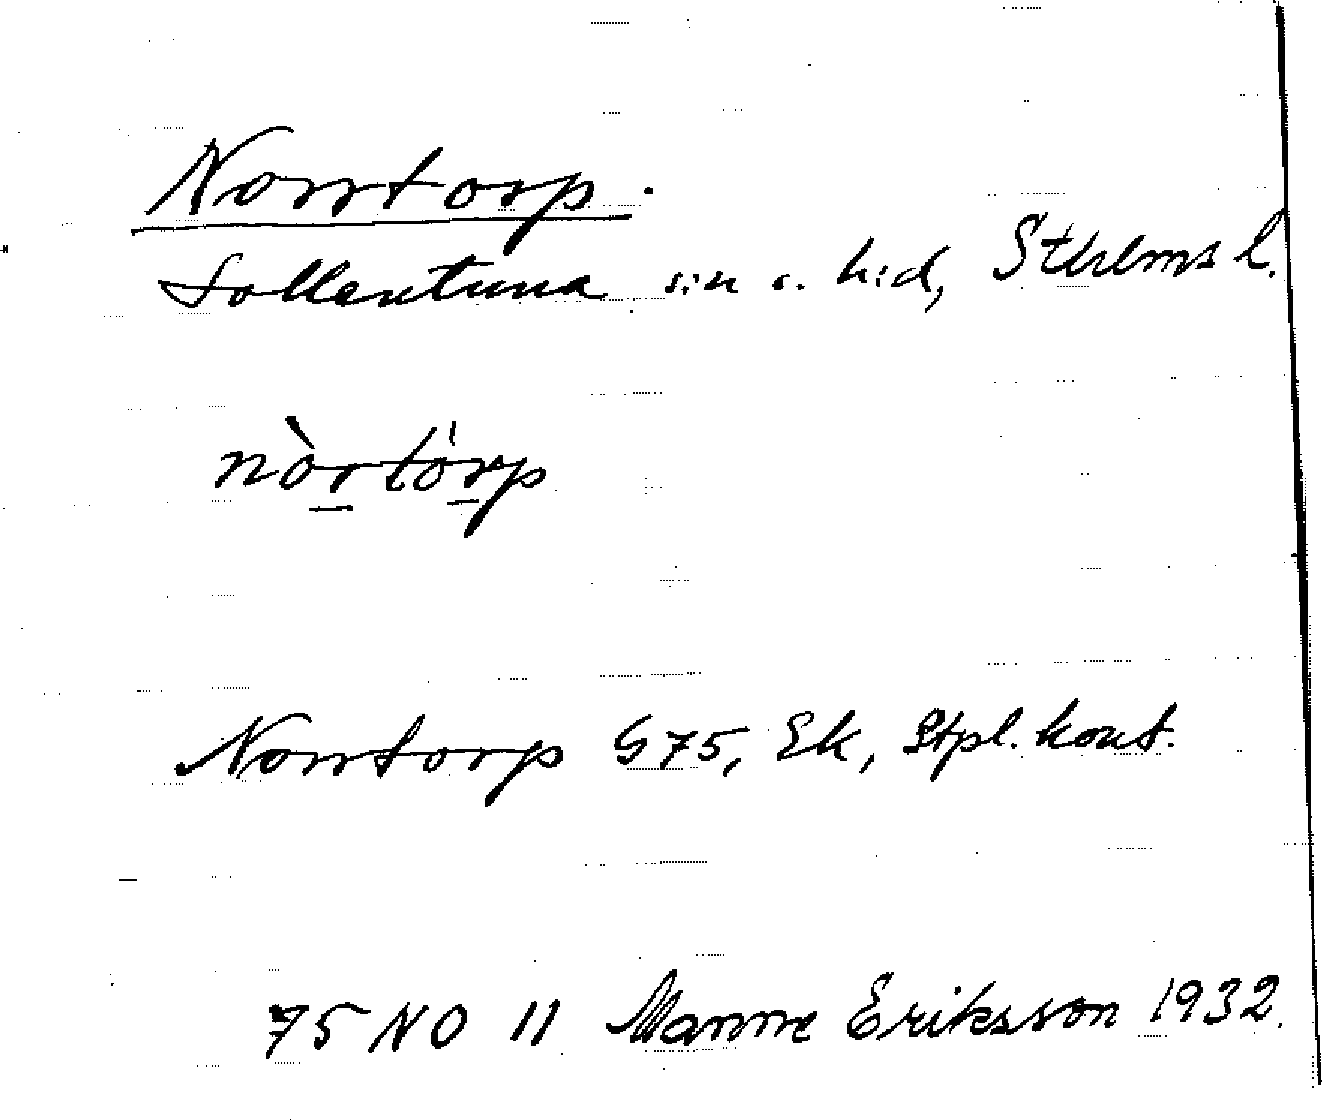 Norrtorp.
Sollentuna s:n o. h:d, Sthlms l.
nòrtȯrp
Norrtorp G75, Ek, Stpl. kont.
75 NO 11 Manne Eriksson 1932.